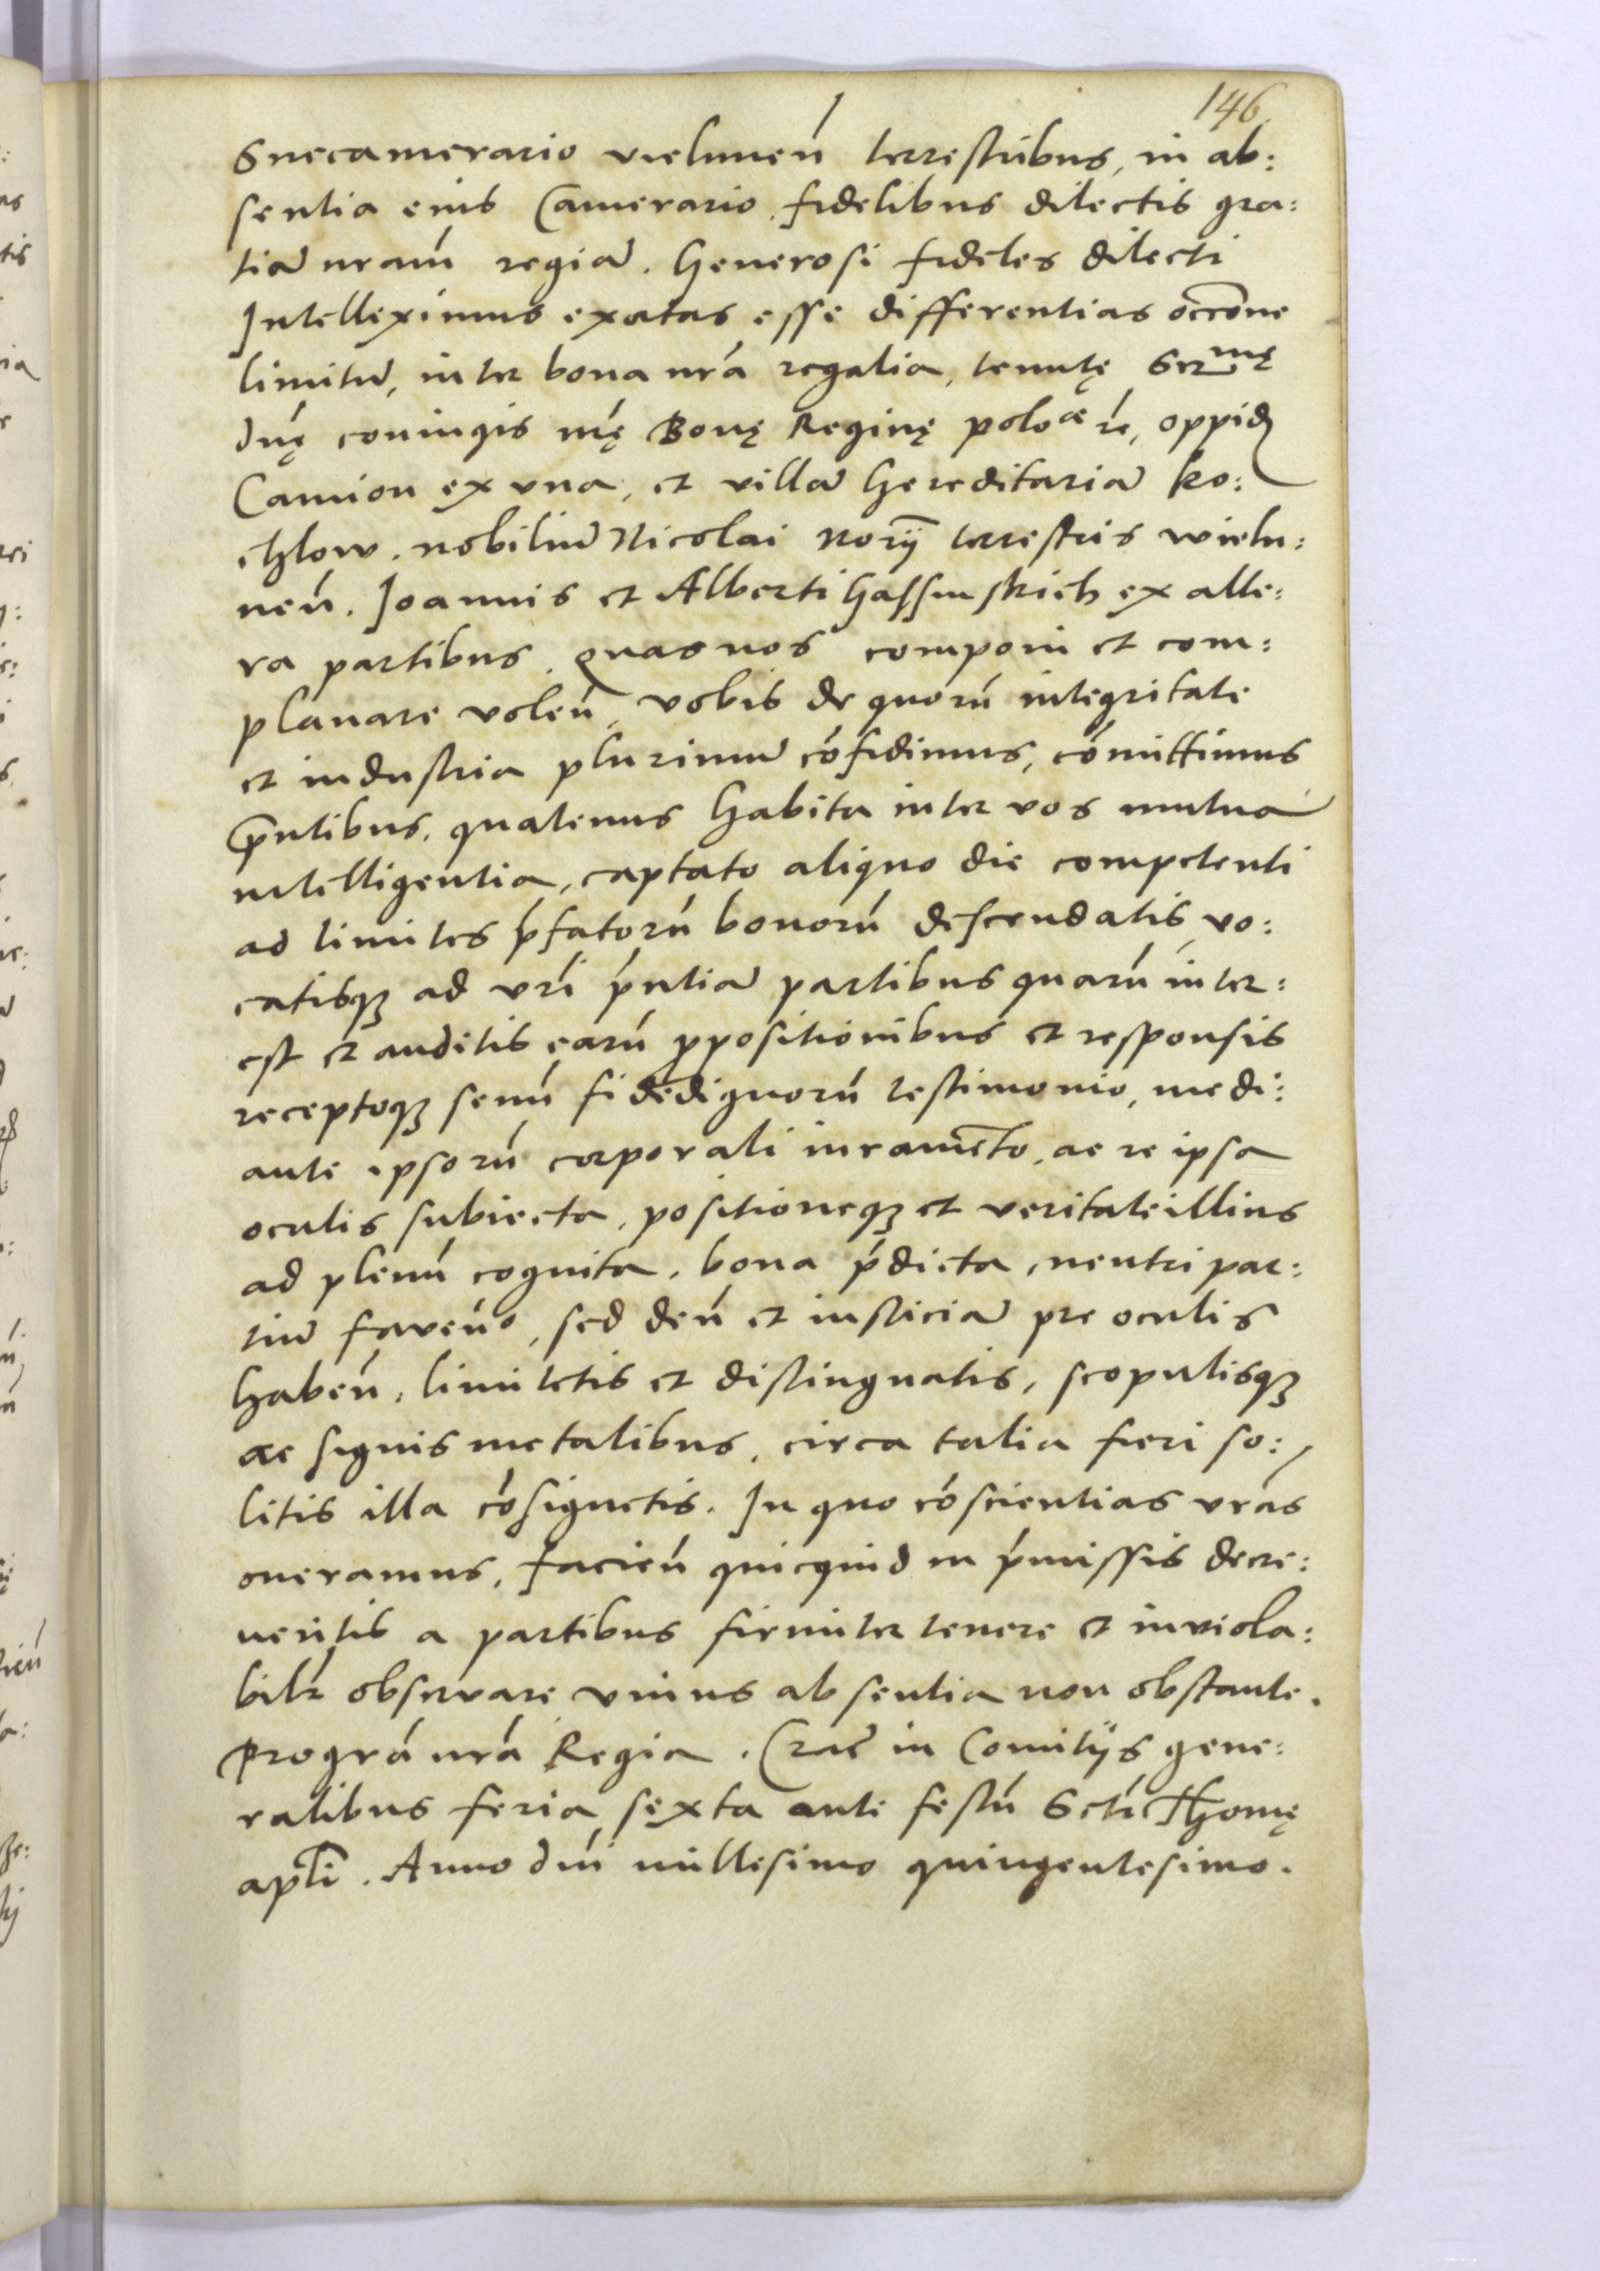 146
Succamerario vielunen̄ terrestribus, in ab:
sentia eius Camerario, fidelibus dilectis gra:
tiā nram̄ regiā. Generosi fideles dilecti
Intelleximus exortas esse differentias occōne
limitū, inter bona nrā regalia, tenutę Sermę
dnę coniugis nrę Bonę Reginę poloē rc̄, oppidj
Camion ex vna, et villā hereditariā ko:
chlow. nobiliū Nicolai Norij terrestris wielu:
nen̄. Joannis et Alberti Gassinskich ex alte:
ra partibus. quas nos componi et com:
planare volen̄, vobis de quorū integritate
et industria plurimū cōfidimus, cōmittimus
pn̄tibus. quatenus habita inter vos mutua
intelligentia, captato aliquo die competenti
ad limites p̄fatorū bonorū descendatis, vo:
catisq3 ad vrī pn̄tiā partibus quarū inter:
est et auditis earū ppositionibus et responsis
receptoq3 senū fidedignorū testimonio, medi:
ante ipsorū corporali iuramēto, ac re ipsa
oculis subiecta, positioneq3 et veritate illius
ad plenū cognita. bona p̄dicta, neutri par:
tiū faven̄o, sed deū et iusticiā pre oculis
haben̄. limitetis et distinguatis, scopulisq3
ac signis metalibus, circa talia fieri so:
litis illa cōsignetis. In quo cōscientias vrās
oneramus. facien̄ quicquid in p̄missis decre:
ueritis a partibus firmiter tenere et inviola:
bilr̄ observare vnius absentia non obstante.
Pro grā nrā Regia. Crac̄ in Comitijs gene:
ralibus feria sexta ante festū Scti Thomę
apli. Anno dnī millesimo quingentesimo.